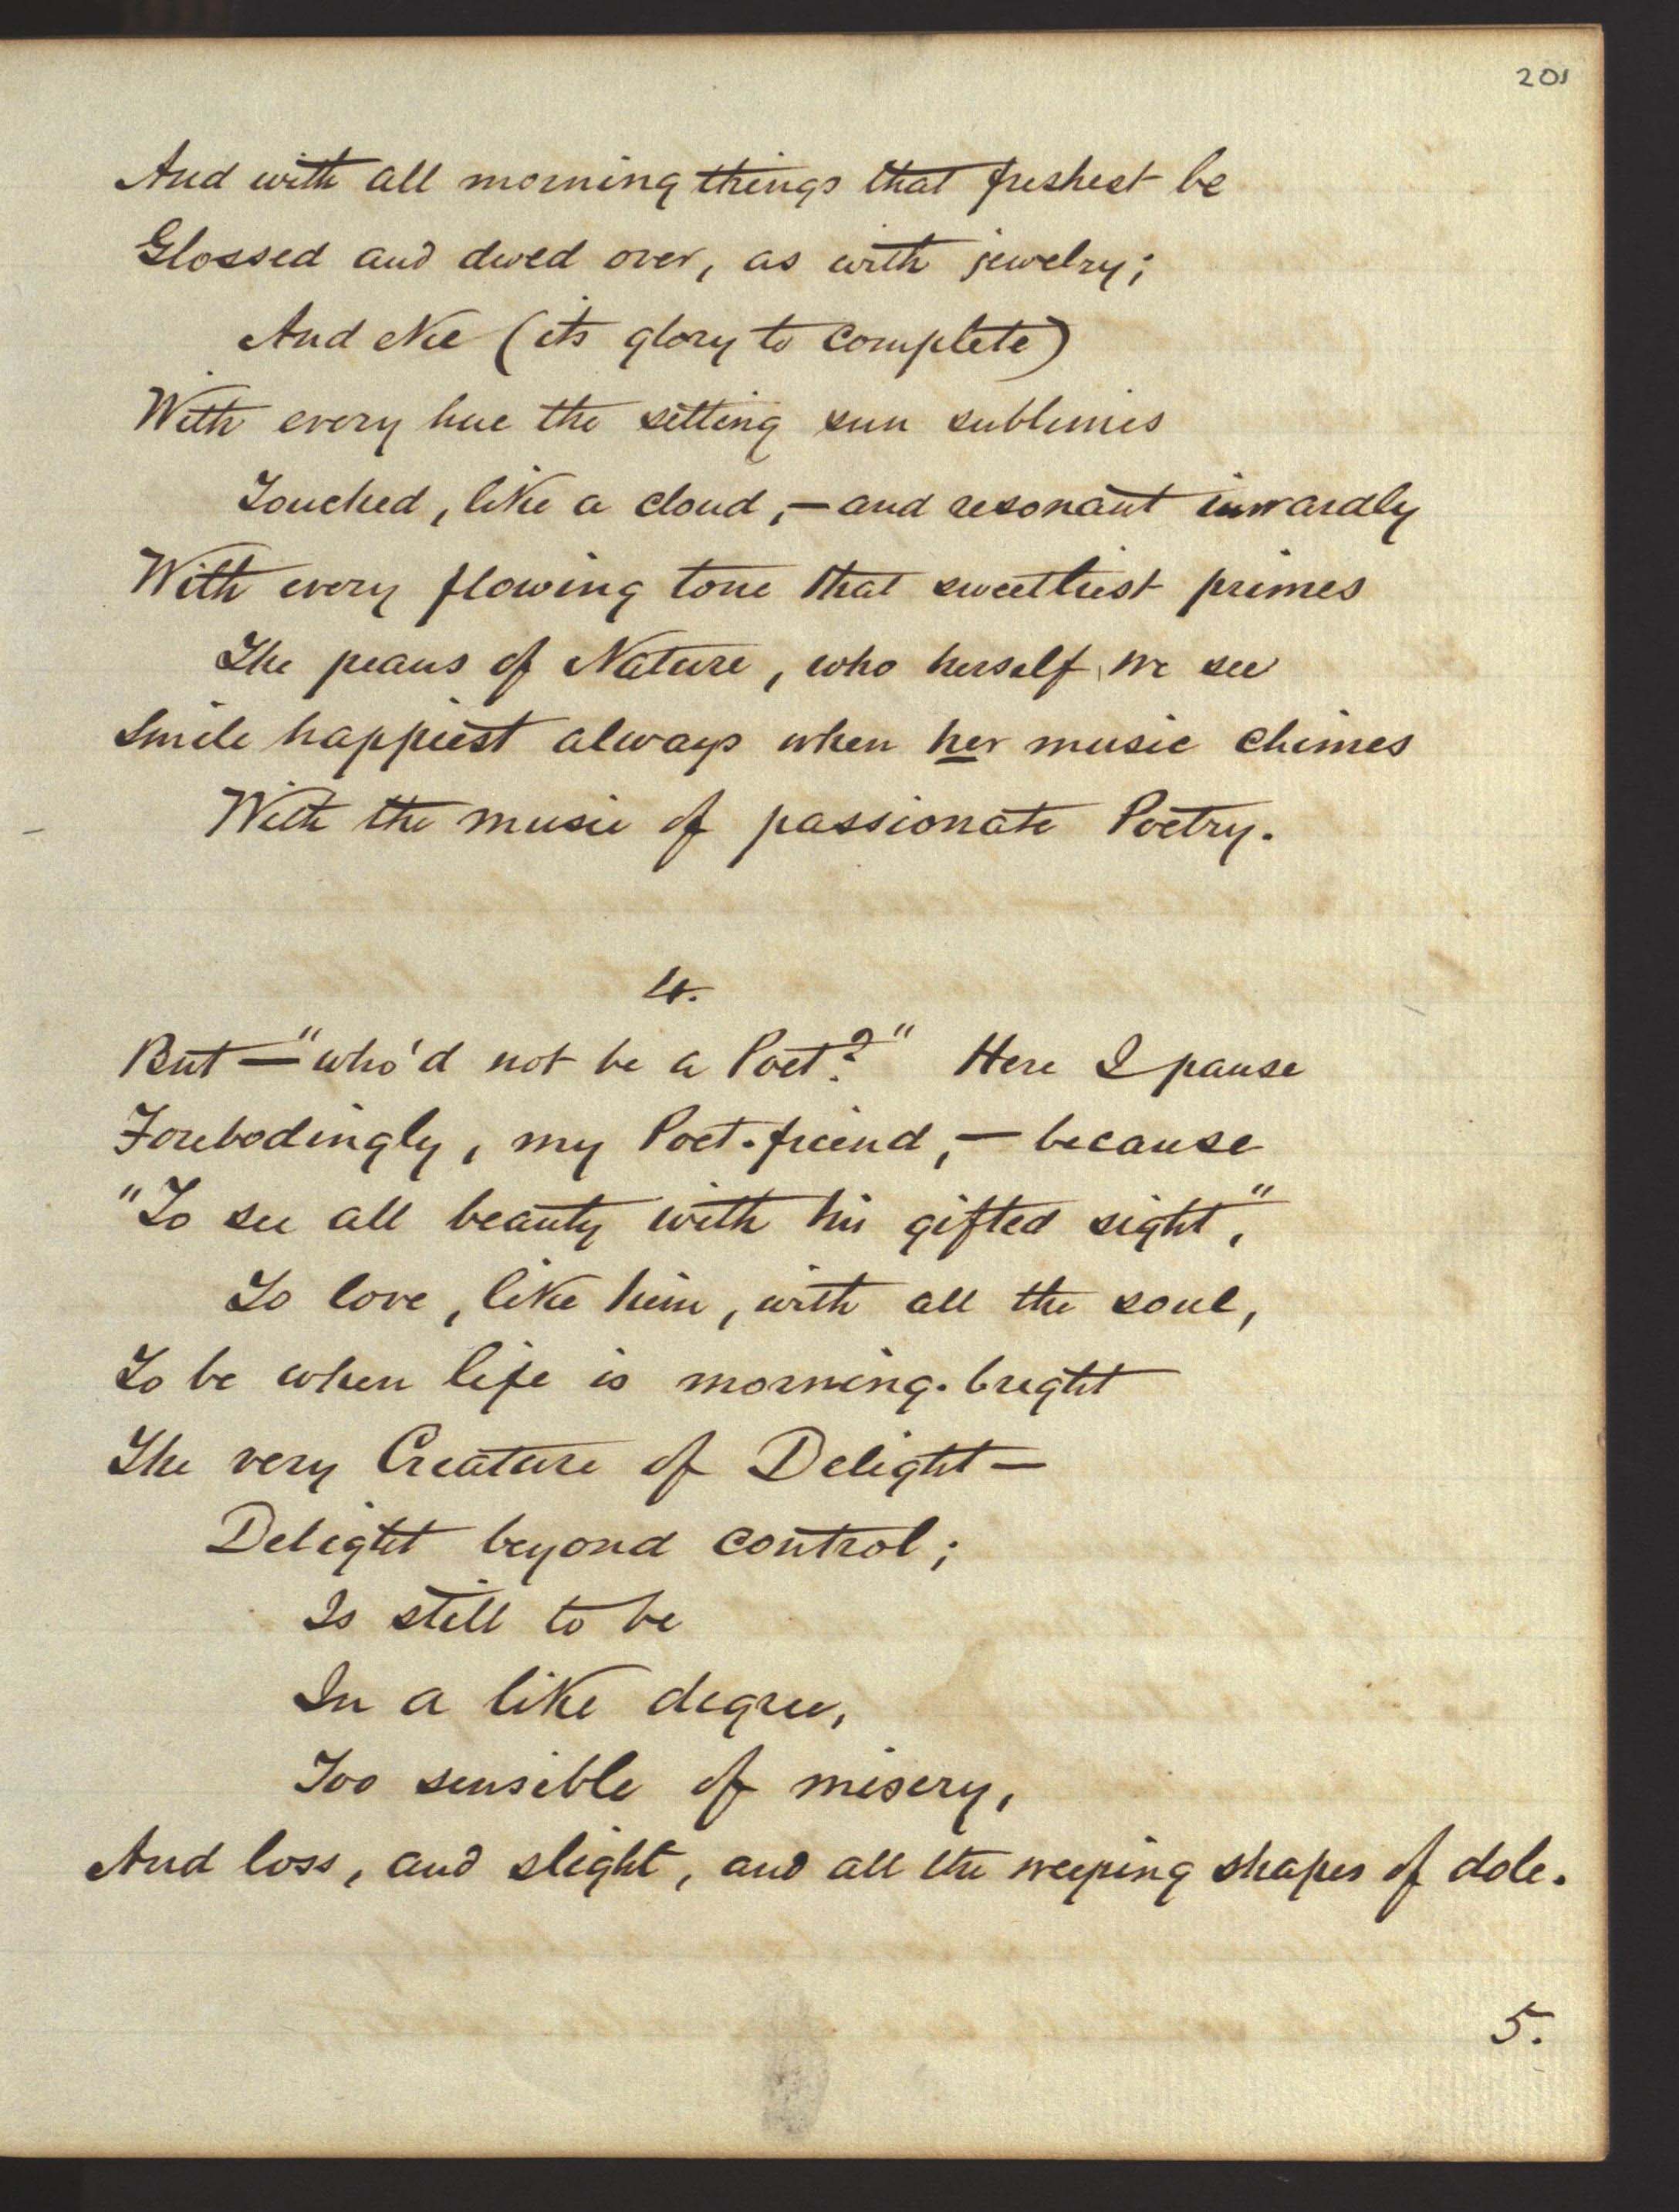 201
And with all morning things that freshest be
Glossed and dwed over, as with jewelry;
And eke (its glory to complete)
With every hue the setting sun sublimes
Touched, like a cloud,—and resonant inwardly
With every flowing tone that sweetliest primes
The peans of Nature, who herself, we see
Smile happiest always when her music chimes
With the music of passionate Poetry.
4.
But—"who'd not be a Poet?" Here I pause
Forebodingly, my Poet-friend,—because
"To see all beauty with his gifted sight,"
To love, like him, with all the soul,
To be when life is morning-bright
The very Creature of Delight—
Delight beyond control;
Is still to be
In a like degree,
Too sensible of misery,
And loss, and slight, and all the weeping shapes of dole.
5.